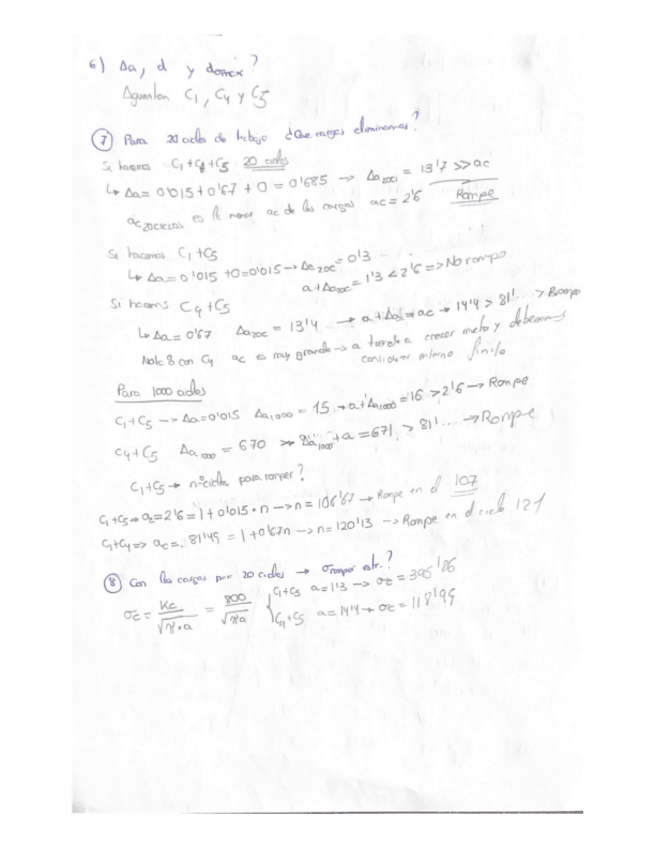 6) Δa, d y dσmáx?
Aguantan C1, C4 y C5
7 Para 20 ciclos de trabajo ¿Que cargas eliminamos?
Si hacemos C1+C4+C5 20 ciclos
↳ Δa = 0'015+0'67+0 = 0'685 → Δa20c1 = 13'7 >> ac
ac20ciclos es la menor ac de las cargas ac = 2'6 Rompe
Si hacemos C1+C5
↳ Δa = 0'015+0=0'015 → Δa20c = 0'3
a+Δa20c = 1'3 < 2'6 => No rompo
Si hacems C4+C5
↳ Δa = 0'67 Δa20c = 13'4 → a+Δa = ac → 14'4 > 81'... > Rompo
Note 8 con C4 ac es muy grande → a tiende a crecer mucho y debemos
considerar entorno finito
Para 1000 ciclos
C1+C5 → Δa=0'015 Δa1000 = 15 → a+Δa1000 = 16 > 2'6 → Rompe
C4+C5 Δa1000 = 670 → Δa1000+a = 671 > 81'... → Rompe
C1+C5 → nºciclos para romper?
C1+C5 → ac=2'6=1+0'015·n → n = 106'67 → Rompe en el 107
C1+C4 => ac = 81'49 = 1+0'67n → n = 120'13 → Rompe en el ciclo 121
8 Con las cargas por 20 ciclos → σromper estr.?
σc = Kc/√π·a = 800/√πa { C1+C5 a=1'3 → σc = 395'86
C4+C5 a=14'4 → σc = 118'99